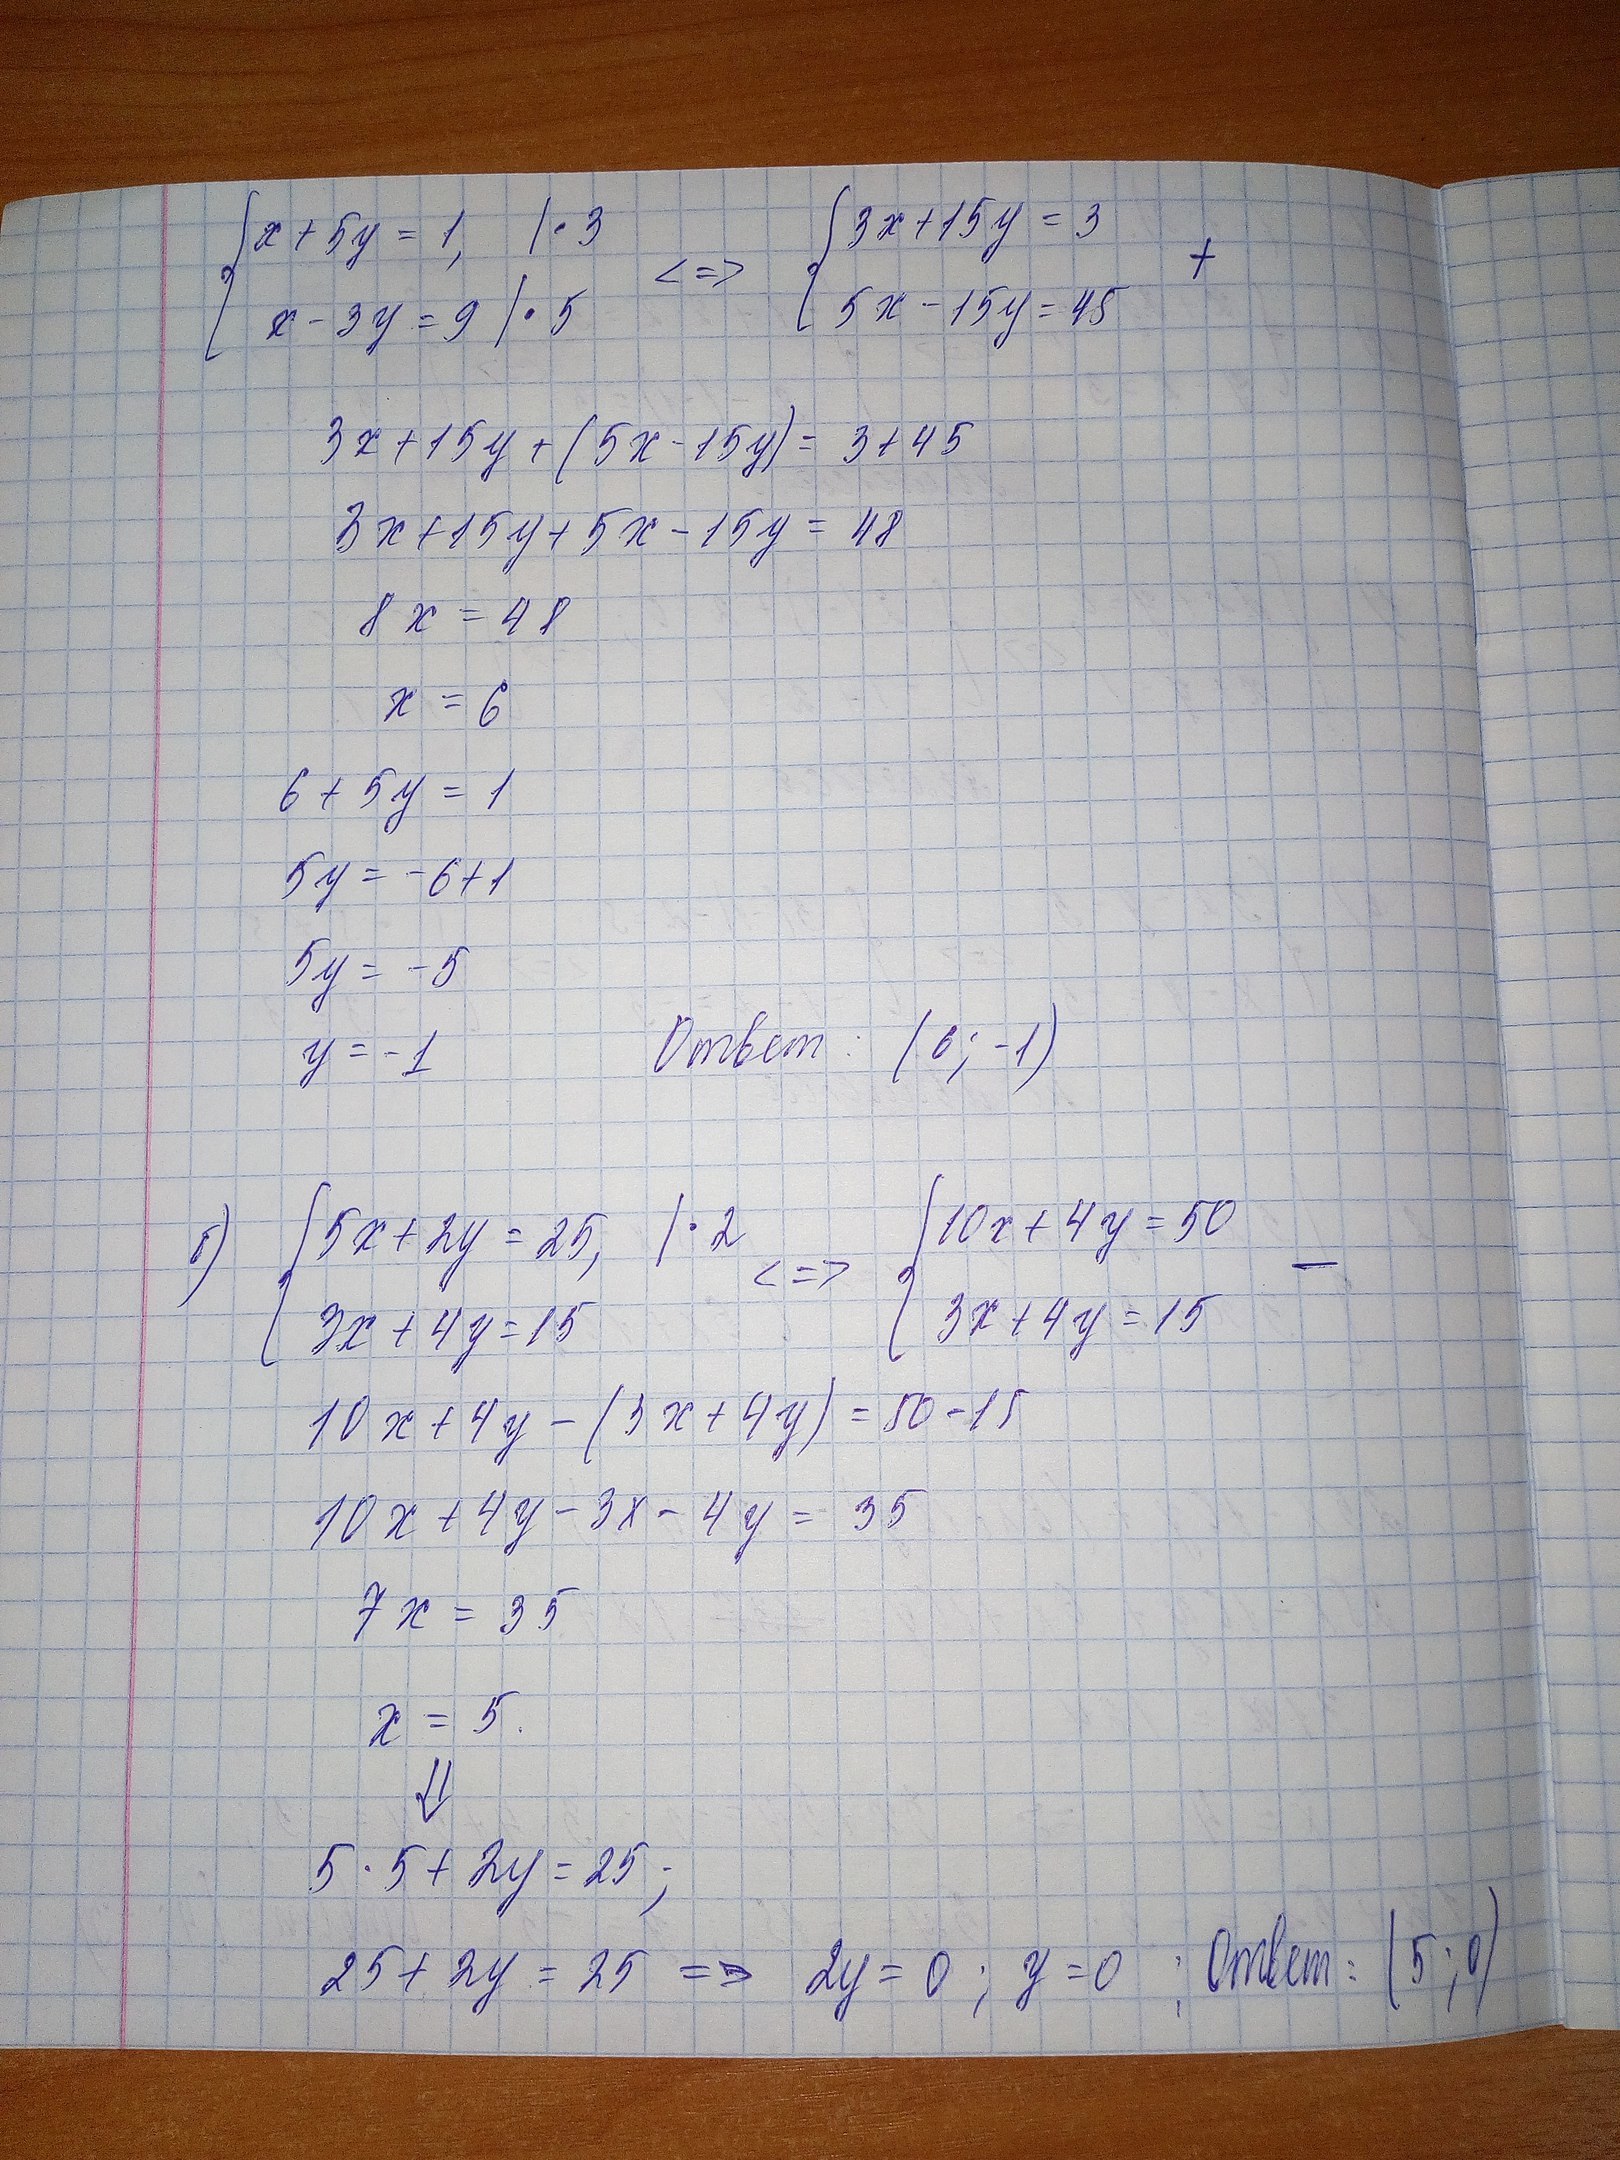 { x + 5y = 1, | · 3 <=> { 3x + 15y = 3 +
x - 3y = 9 | · 5 5x - 15y = 45
3x + 15y + (5x - 15y) = 3 + 45
3x + 15y + 5x - 15y = 48
8x = 48
x = 6
6 + 5y = 1
5y = -6 + 1
5y = -5
y = -1 Ответ: (6; -1)
б) { 5x + 2y = 25, | · 2 <=> { 10x + 4y = 50 —
3x + 4y = 15 3x + 4y = 15
10x + 4y - (3x + 4y) = 50 - 15
10x + 4y - 3x - 4y = 35
7x = 35
x = 5.
⇓
5 · 5 + 2y = 25;
25 + 2y = 25 => 2y = 0; y = 0; Ответ: (5; 0)